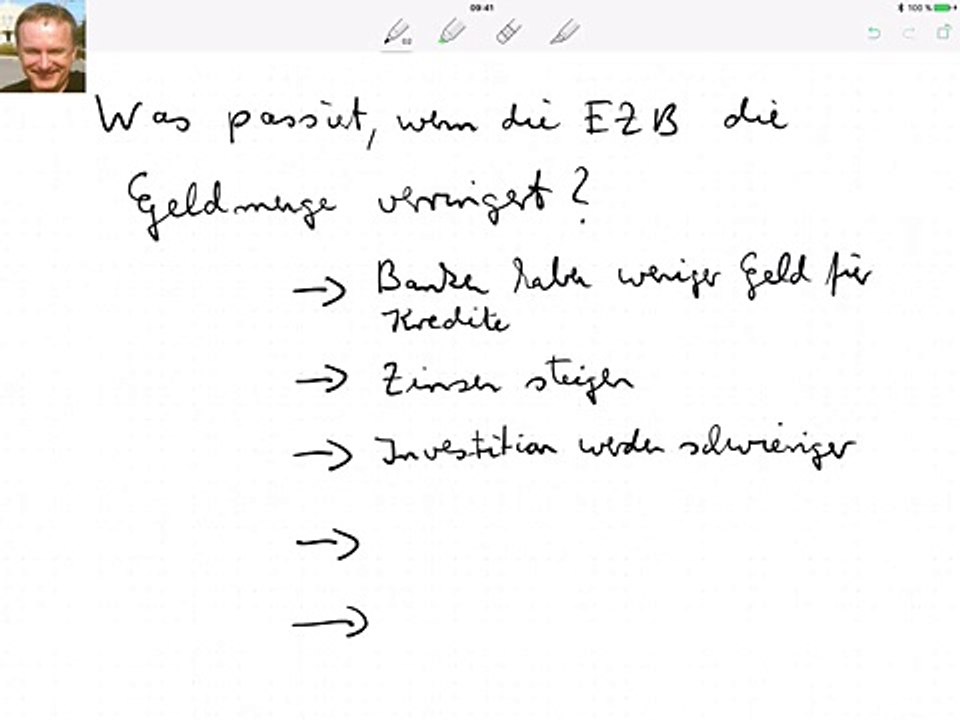 09:41
100 %
02
Was passiert, wenn die EZB die
Geldmenge verringert?
→ Banken haben weniger Geld für
Kredite
→ Zinsen steigen
→ Investition werden schwieriger
→
→